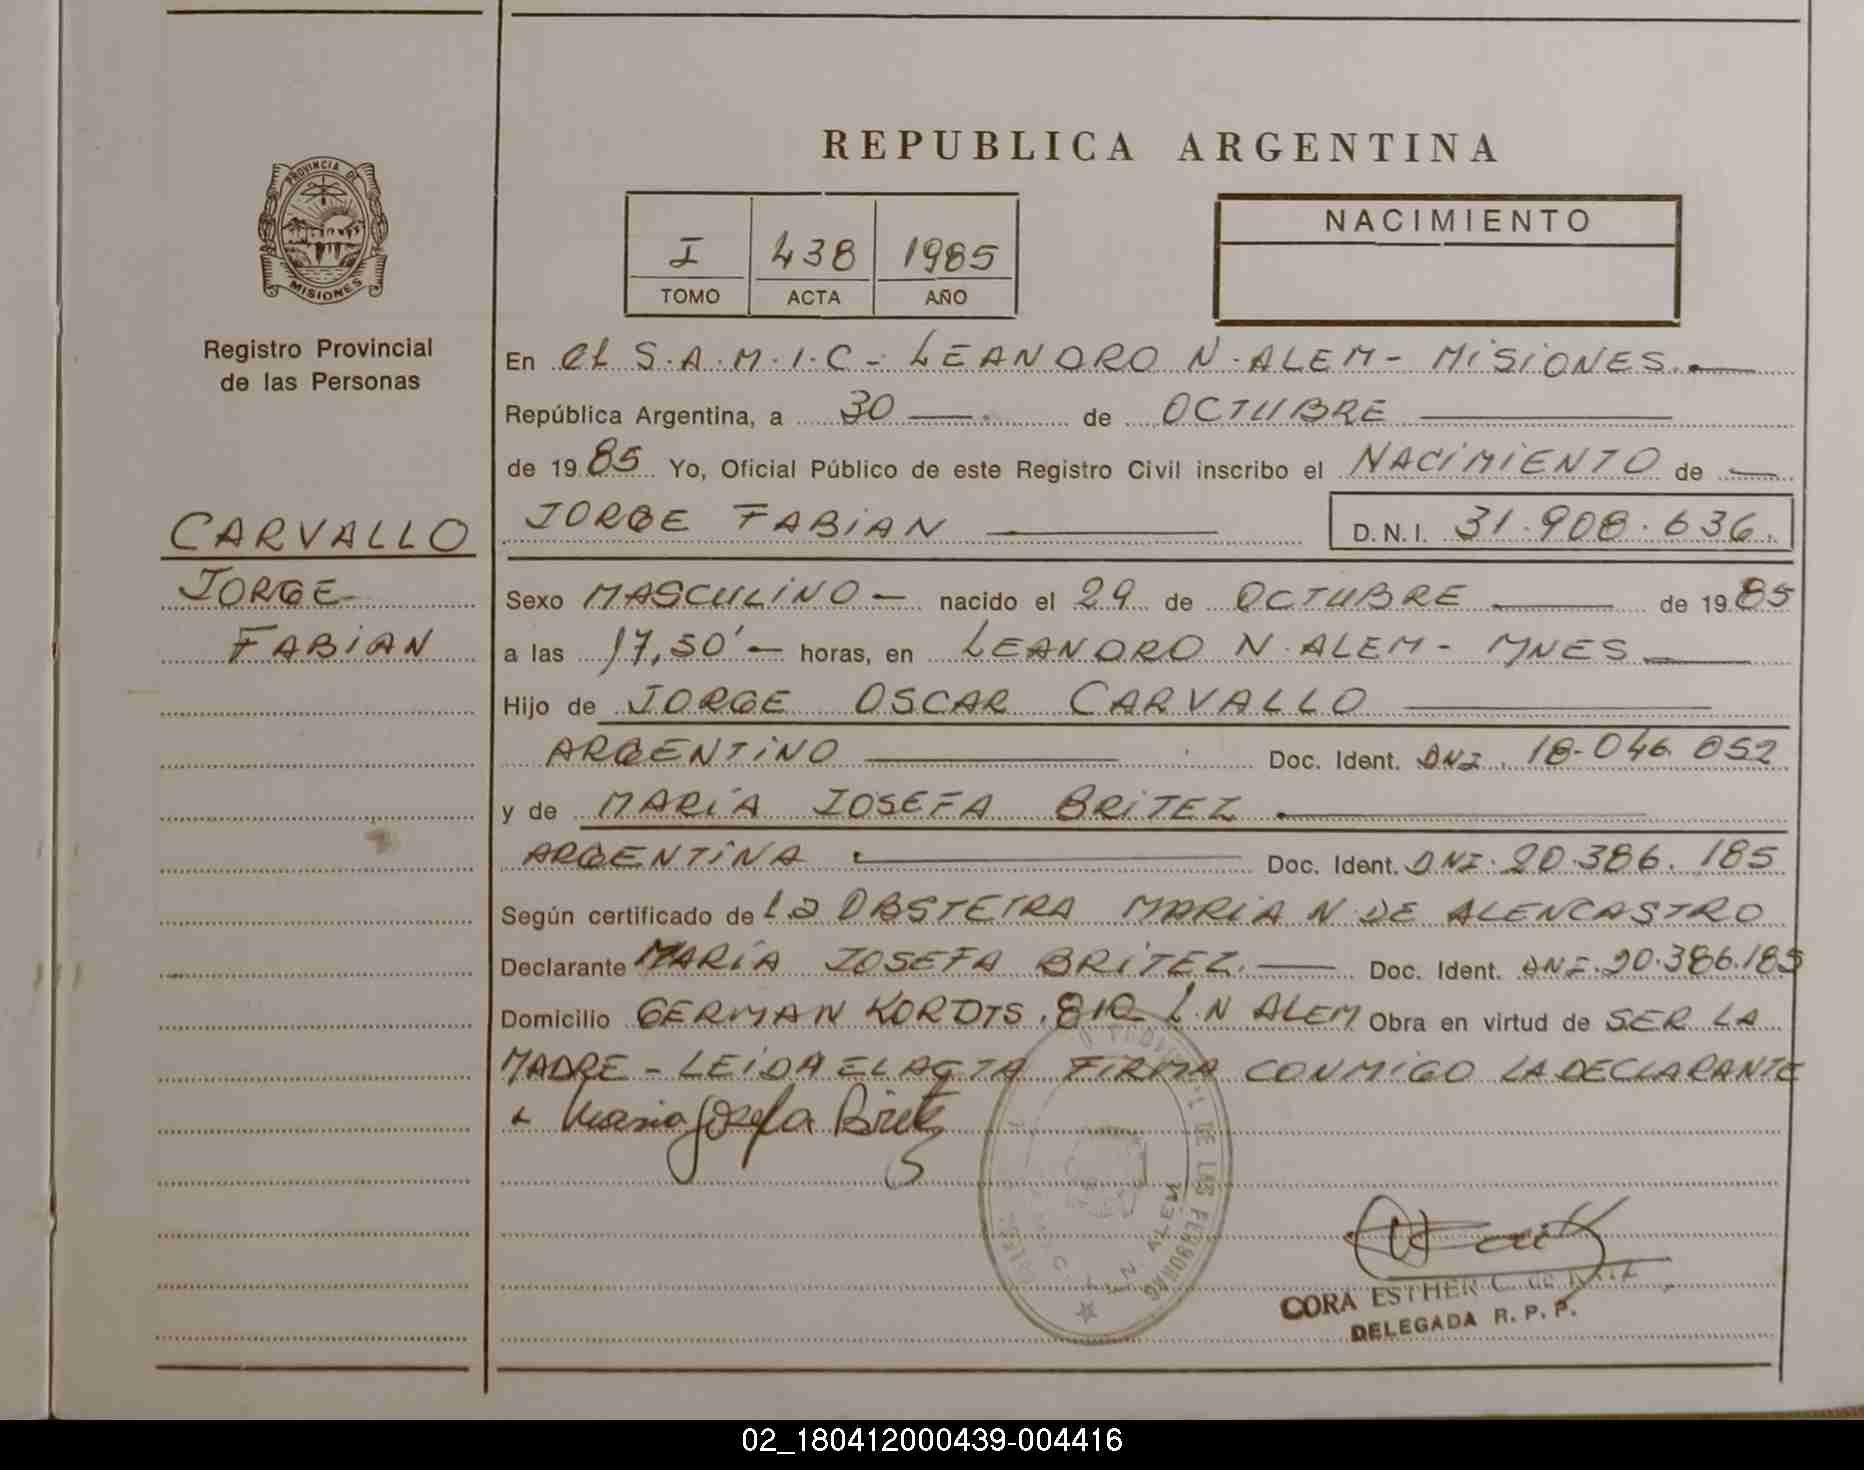 REPUBLICA ARGENTINA
PROVINCIA DE
MISIONES
Registro Provincial
de las Personas
CARVALLO
JORGE
FABIAN
I 438 1985
TOMO ACTA AÑO
NACIMIENTO
En el S.A.M.I.C - LEANDRO N. ALEM - MISIONES.
República Argentina, a 30 de OCTUBRE
de 1985 Yo, Oficial Público de este Registro Civil inscribo el NACIMIENTO de
JORGE FABIAN D.N.I. 31.908.636.
Sexo MASCULINO - nacido el 29 de OCTUBRE de 1985
a las 17,50' - horas, en LEANDRO N. ALEM - MNES
Hijo de JORGE OSCAR CARVALLO
ARGENTINO Doc. Ident. DNI. 18.046.052
y de MARÍA JOSEFA BRITEZ
ARGENTINA Doc. Ident. DNI. 20.386.185
Según certificado de la OBSTETRA MARIA N. DE ALENCASTRO
Declarante MARÍA JOSEFA BRITEZ. Doc. Ident. DNI. 20.386.185
Domicilio GERMAN KORDTS. 810 L.N ALEM Obra en virtud de SER LA
MADRE - LEIDA EL ACTA FIRMA CONMIGO LA DECLARANTE
Maria Josefa Britez
DE LAS PERSONAS
N. ALEM
CORA ESTHER C. de
DELEGADA R.P.P.
02_180412000439-004416